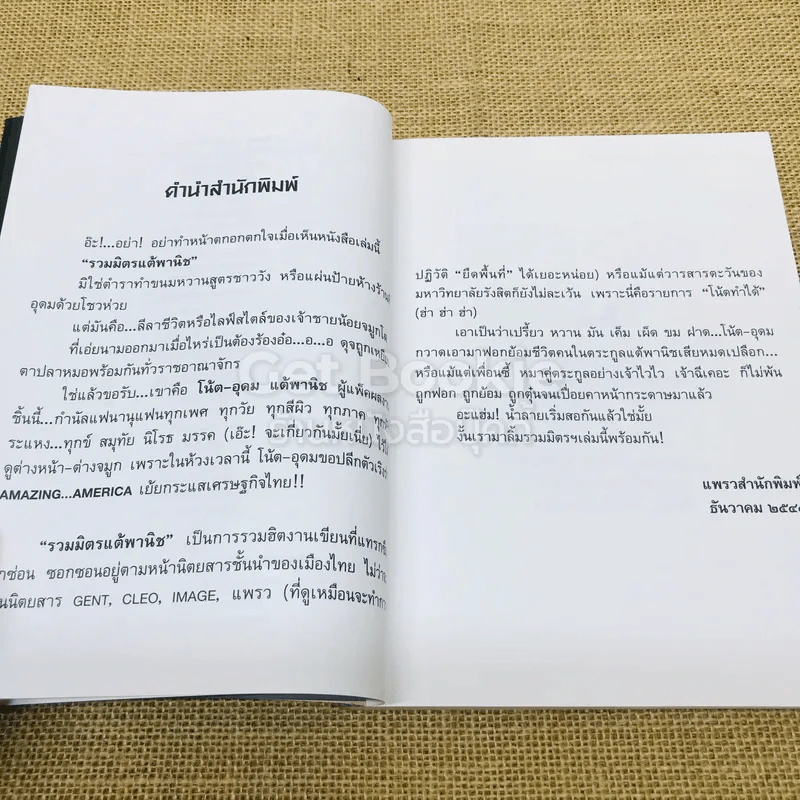 คำนำสำนักพิมพ์
อ๊ะ!...อย่า! อย่าทำหน้าตกอกตกใจเมื่อเห็นหนังสือเล่มนี้
“รวมมิตรแต้พานิช”
มิใช่ตำราทำขนมหวานสูตรชาววัง หรือแผ่นป้ายห้างร้าน
อุดมด้วยโชวห่วย
แต่มันคือ...ลีลาชีวิตหรือไลฟ์สไตล์ของเจ้าชายน้อยจมูกโต
ที่เอ่ยนามออกมาเมื่อไหร่เป็นต้องร้องอ๋อ...อ...อ ดุจถูกเหยียบ
ตาปลาหมอพร้อมกันทั่วราชอาณาจักร
ใช่แล้วขอรับ...เขาคือ โน้ต-อุดม แต้พานิช ผู้แพ็คผลงาน
ชิ้นนี้...กำนัลแฟนานุแฟนทุกเพศ ทุกวัย ทุกสีผิว ทุกภาค
ระแหง...ทุกข์ สมุทัย นิโรธ มรรค (เอ๊ะ! จะเกี่ยวกันมั้ยเนี่ย) ไว้
ดูต่างหน้า-ต่างจมูก เพราะในห้วงเวลานี้ โน้ต-อุดมขอปลีกตัวเริง
AMAZING...AMERICA เย้ยกระแสเศรษฐกิจไทย!!
“รวมมิตรแต้พานิช” เป็นการรวมฮิตงานเขียนที่แทรกซึม
กซ่อน ซอกซอนอยู่ตามหน้านิตยสารชั้นนำของเมืองไทย ไม่ว่าจะ
นนิตยสาร GENT, CLEO, IMAGE, แพรว (ที่ดูเหมือนจะทำการ
ปฏิวัติ “ยึดพื้นที่” ได้เยอะหน่อย) หรือแม้แต่วารสารตะวันของ
มหาวิทยาลัยรังสิตก็ยังไม่ละเว้น เพราะนี่คือรายการ “โน้ตทำได้”
(ฮ่า ฮ่า ฮ่า)
เอาเป็นว่าเปรี้ยว หวาน มัน เค็ม เผ็ด ขม ฝาด...โน้ต-อุดม
กวาดเอามาฟอกย้อมชีวิตคนในตระกูลแต้พานิชเสียหมดเปลือก...
หรือแม้แต่เพื่อนซี้ หมาคู่ตระกูลอย่างเจ้าไวไว เจ้าฉีเคอะ ก็ไม่พ้น
ถูกฟอก ถูกย้อม ถูกตุ๋นจนเปื่อยคาหน้ากระดาษมาแล้ว
อะแฮ่ม! น้ำลายเริ่มสอกันแล้วใช่มั้ย
งั้นเรามาลิ้มรวมมิตรฯเล่มนี้พร้อมกัน!
แพรวสำนักพิมพ์
ธันวาคม ๒๕๔
Get Bookie